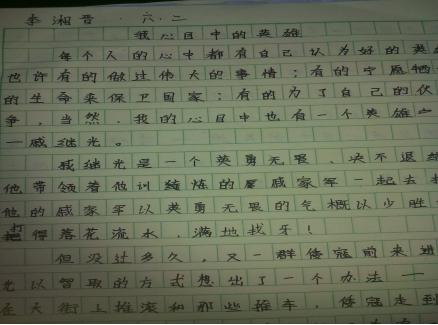 李湘晋 . 六.二
我心目中的英雄
每个人的心中都有自己认为好的英
也许有的做过伟大的事情；有的宁愿牺
的生命来保卫国家；有的为了自己的伙
争，当然，我的心目中也有一个英雄
—戚继光。
戚继光是一个英勇无畏、决不退
他带领着他训练的戚家军一起去
他的戚家军以英勇无畏的气概以少胜
打得落花流水，满地找牙！
但没过多久，又一群倭寇前来进
光以智取的方式想出了一个办法—
在大街上推滚和那些推车，倭寇走到